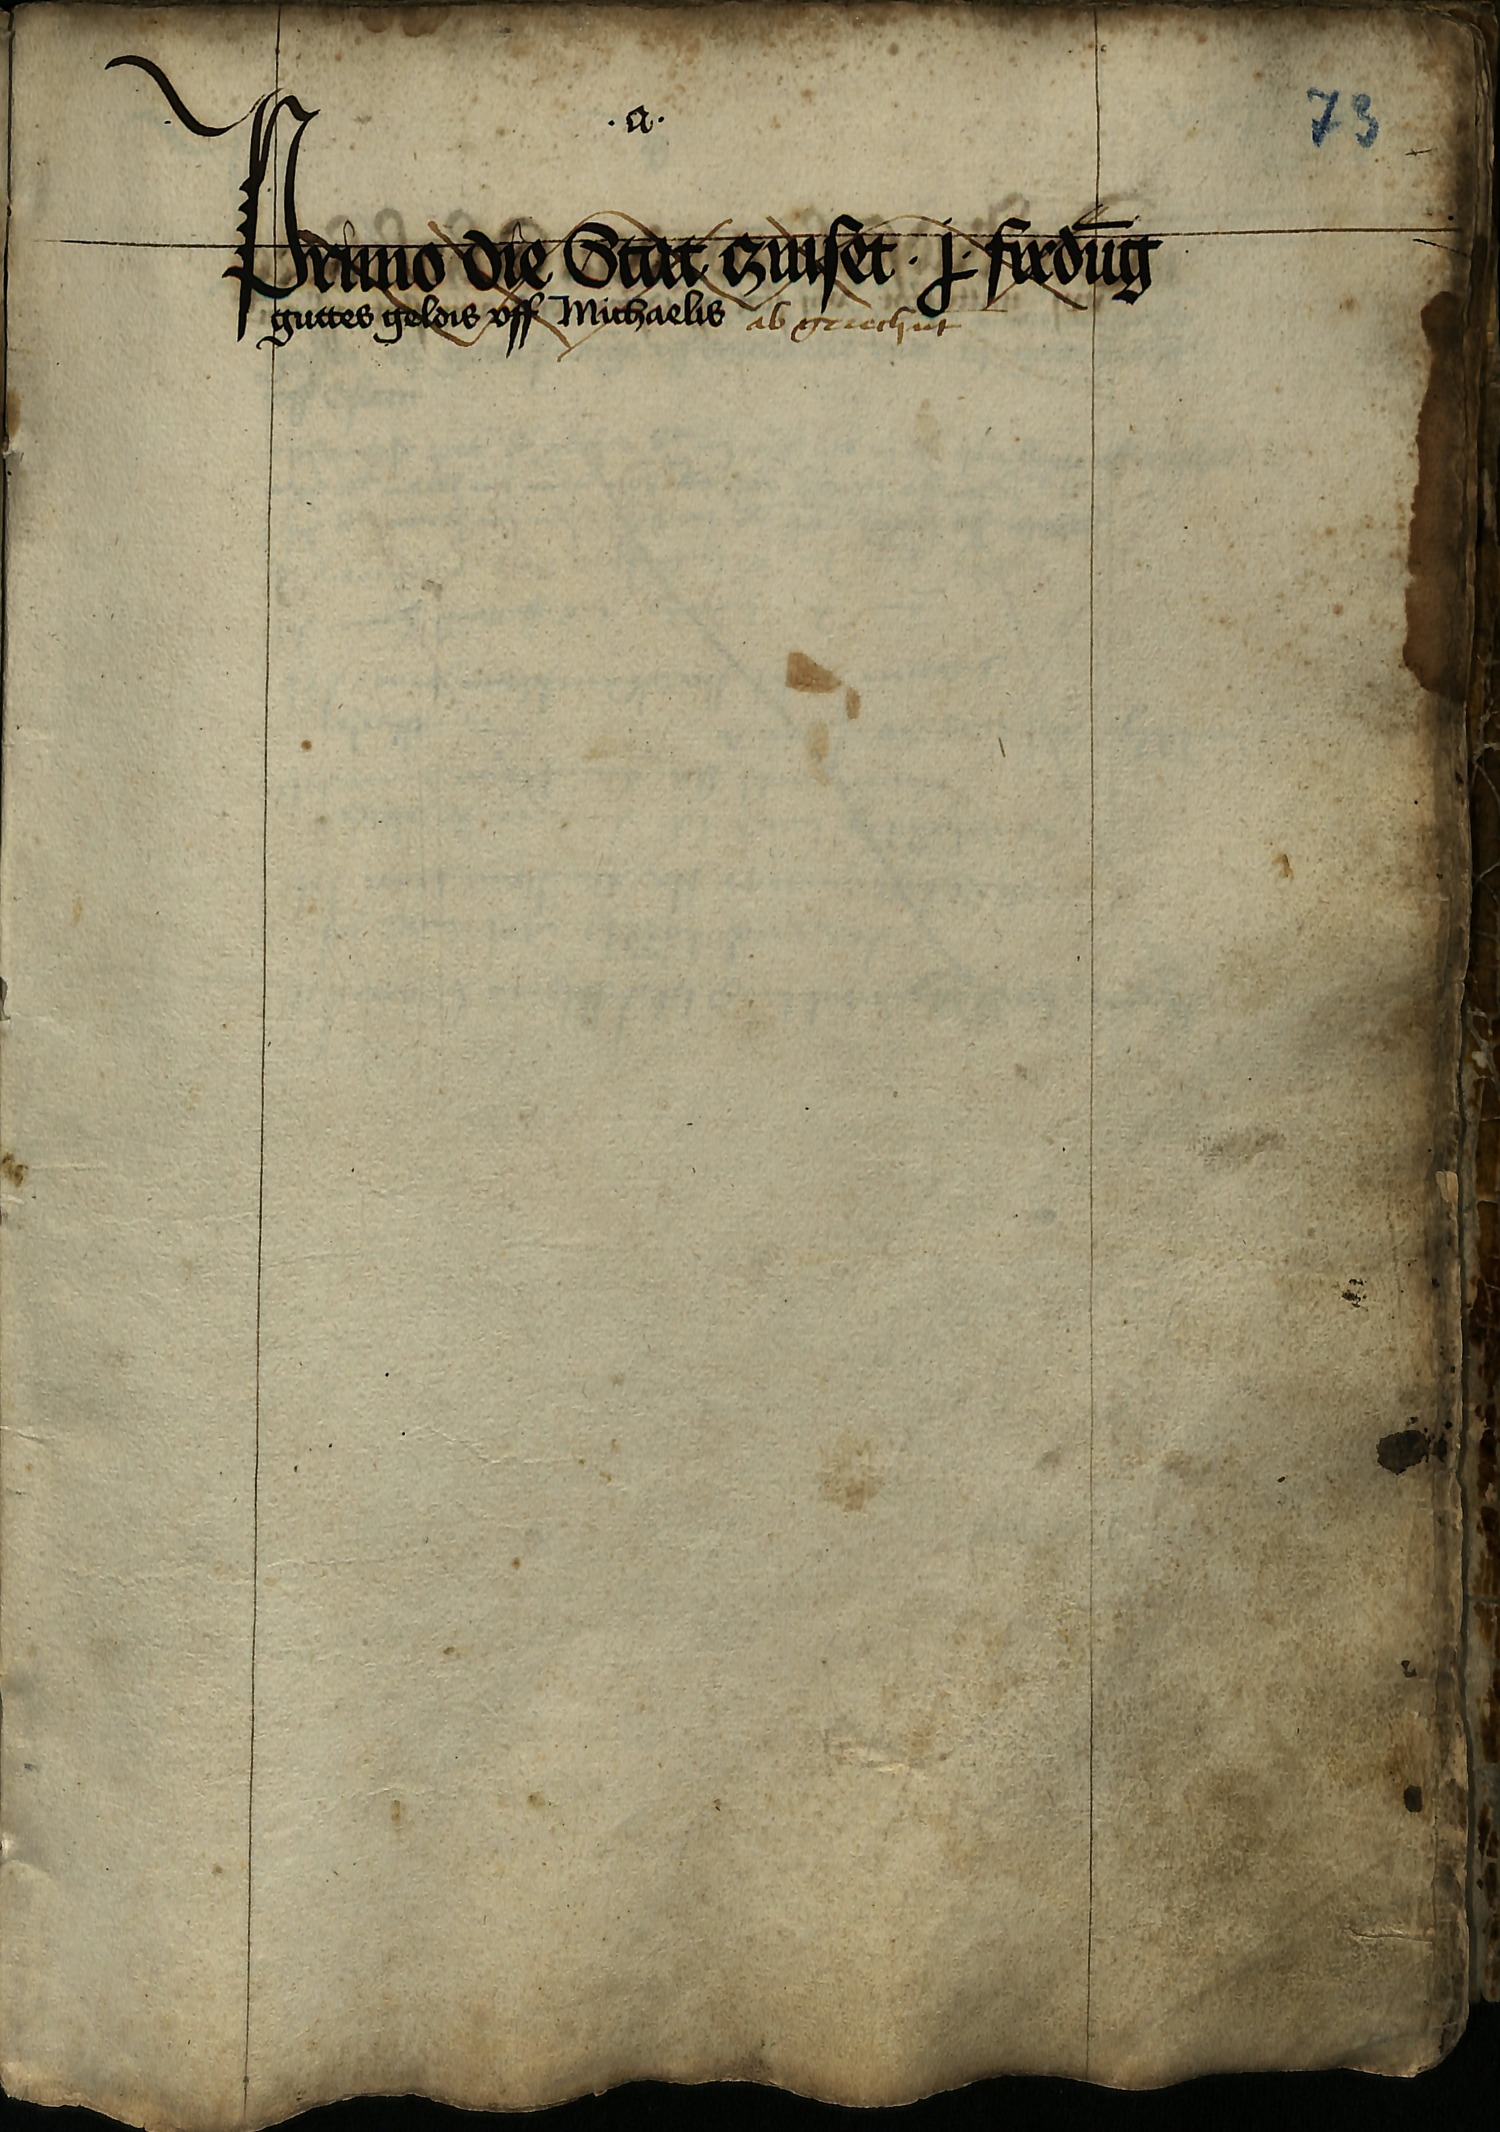 73
·a·
Primo die Stat czinset · j · firdūg
guttes geldis vff Michaelis ab gerechnt